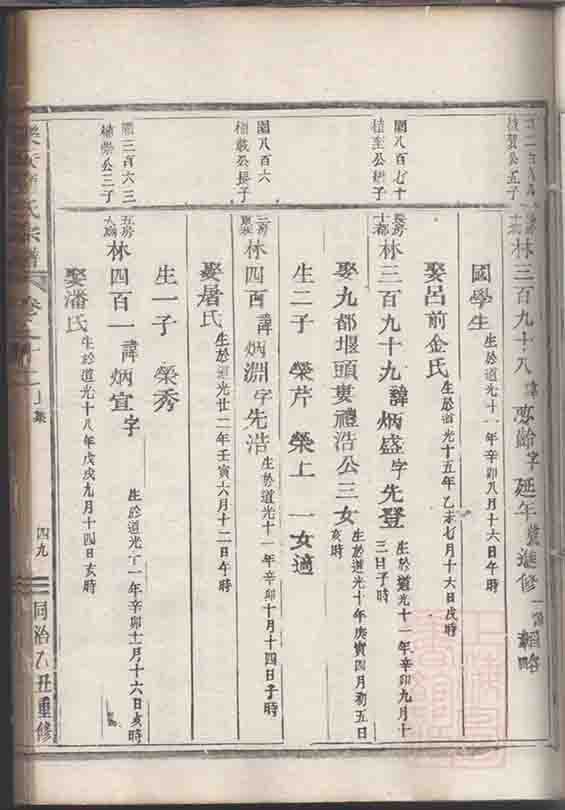 林三百九十八 諱 彌齡 字 延年 進修
國學生 生於道光十一年辛卯八月十六日午時
娶呂前金氏 生於道光十五年乙未七月十六日戌時
圍八百七十
長房 林三百九十九 諱炳盛 字先登 生於道光十一年辛卯九月十三日子時
娶九都堰頭裏禮浩公三女 生於道光十年庚寅四月初五日亥時
生二子 榮芹 榮上 一女適
圍八百六
公長子
林四百 諱炳淵 字先浩 生於道光十一年辛卯十月十四日子時
娶屠氏 生於道光廿二年壬寅六月十二日午時
生一子 榮秀
三百六三
公三子
五房 林四百一 諱炳宜 字 生於道光十一年辛卯十一月十六日亥時
娶潘氏 生於道光十八年戊戌九月十四日亥時
氏宗譜
集
四九
同治乙丑重修